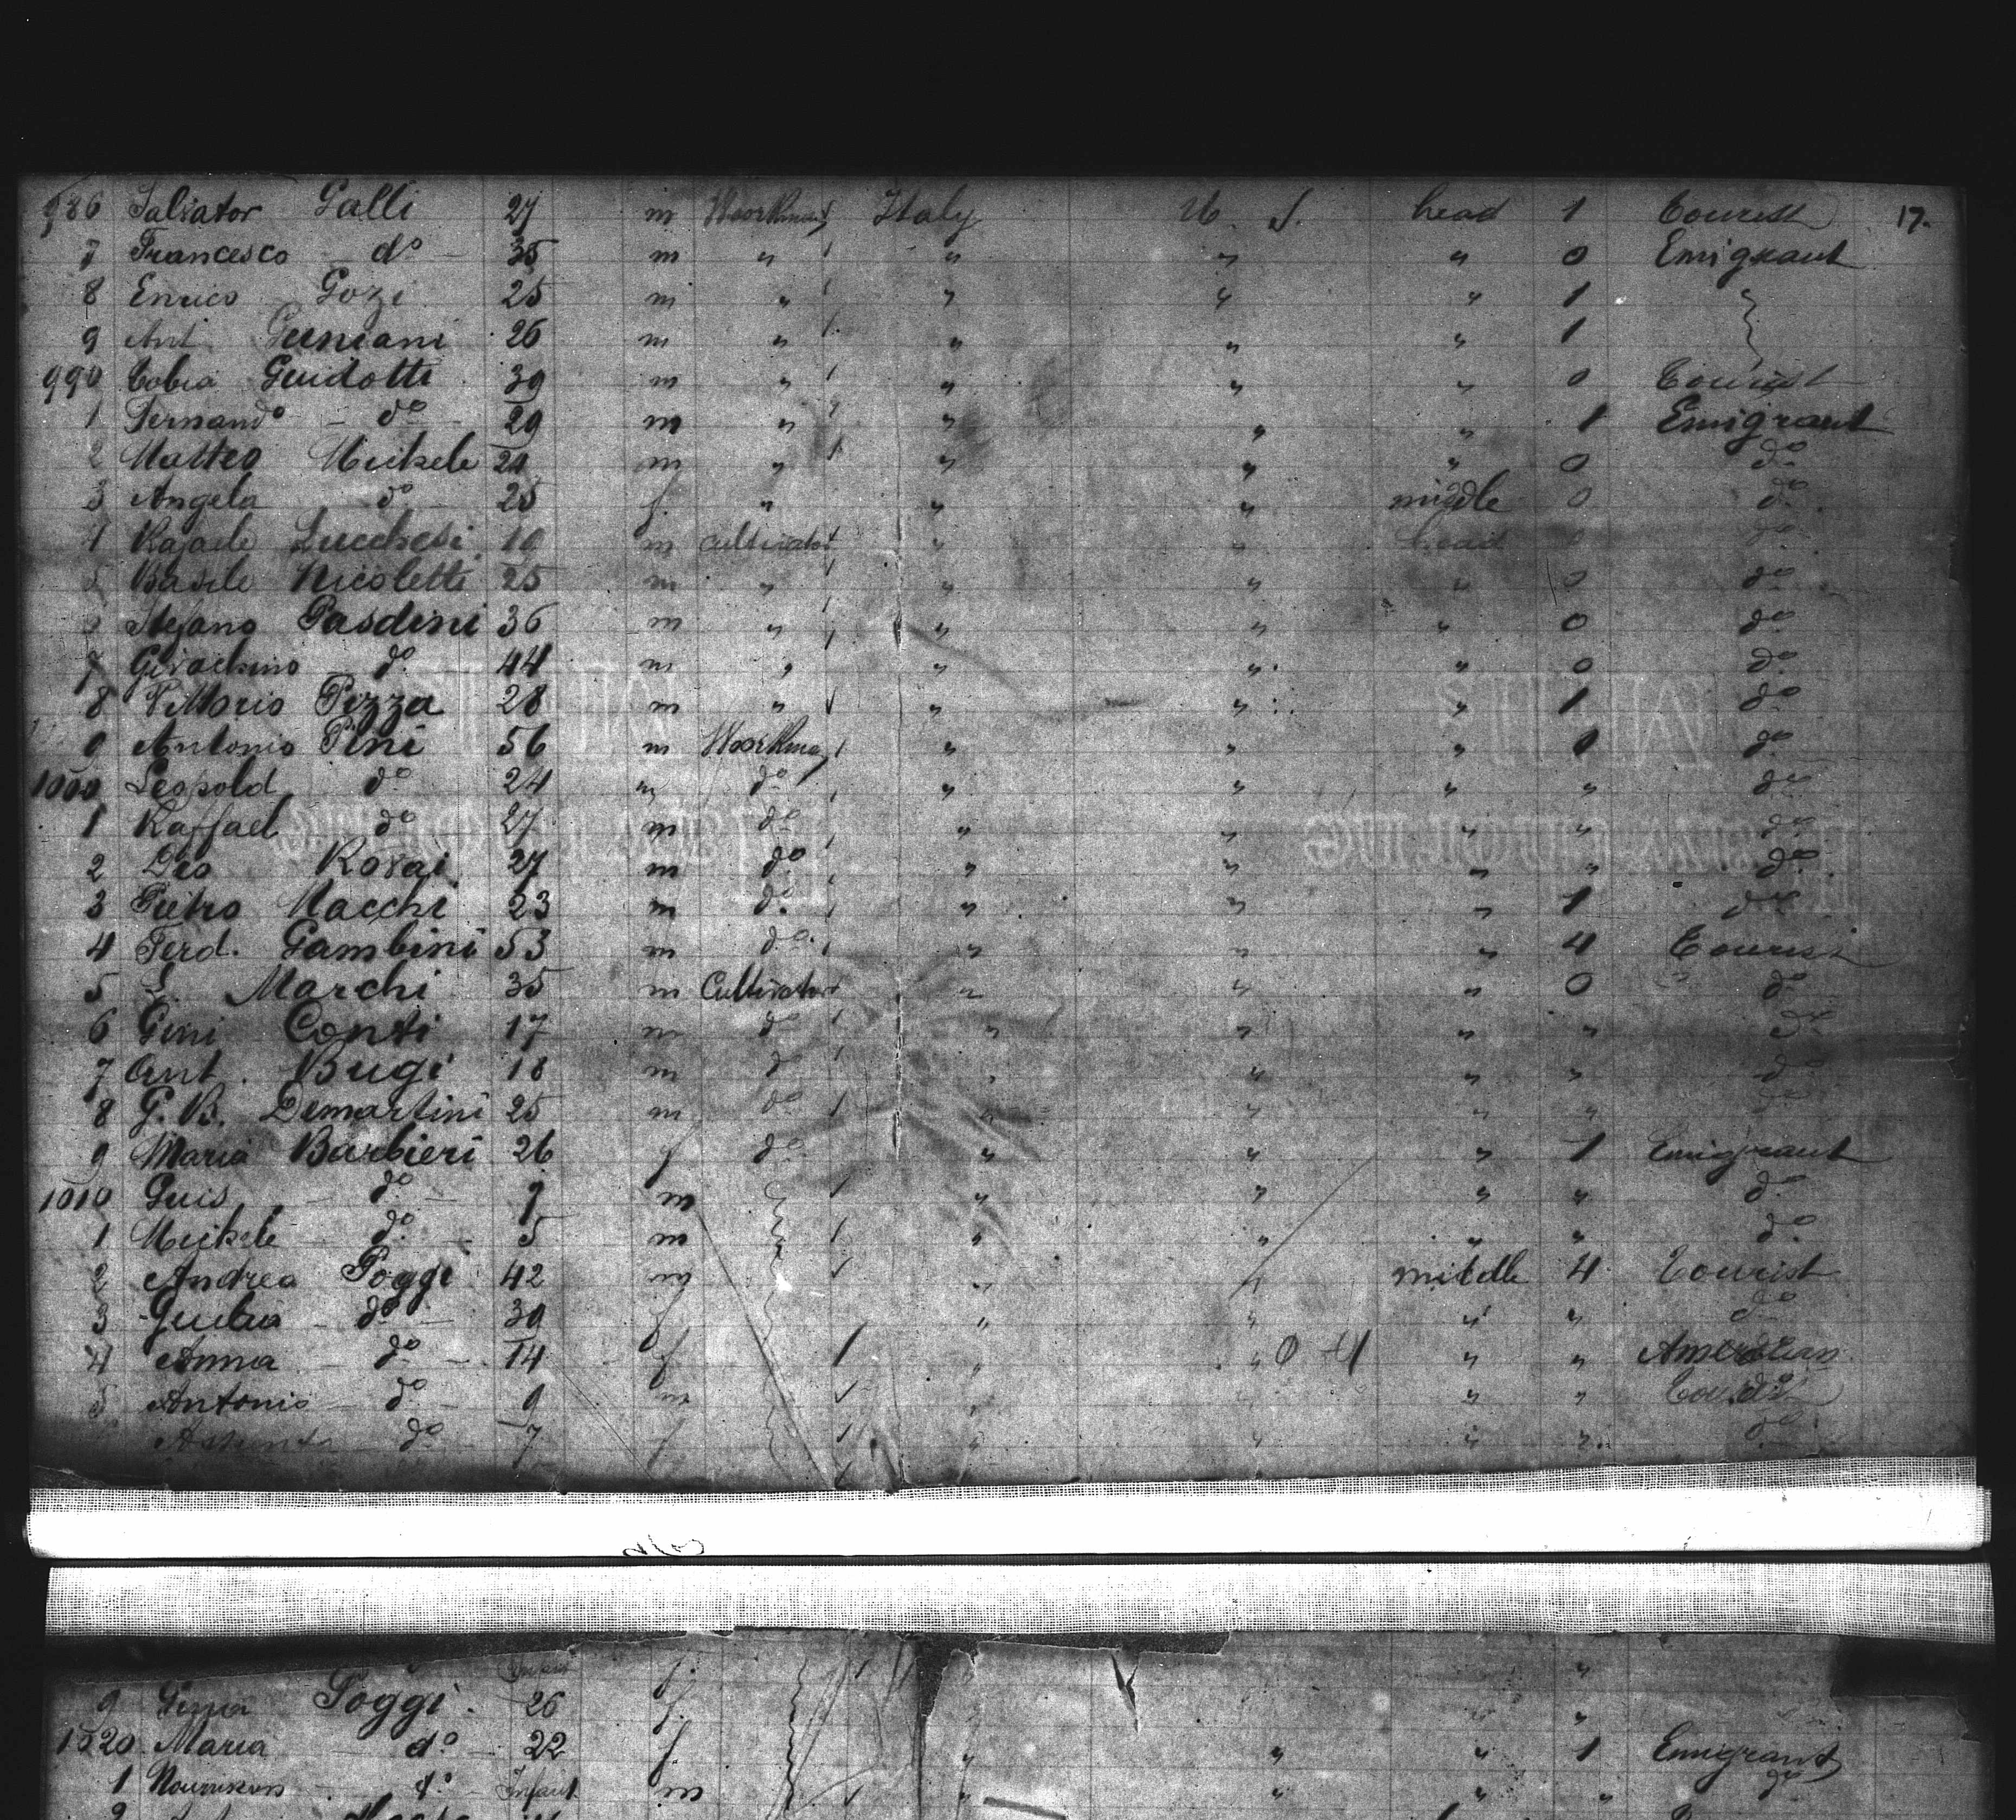 986 Salvator Galli 27 m Workman Italy U. S. head 1 Tourist 17.
7 Francesco do 35 m " " " " 0 Emigrant
8 Enrico Gozi 25 m " " " " 1
9 Ant. 26 m " " " " 1
990 Tobia Guidotti 39 m " " " " 0 Tourist
1 Fernando do 29 m " " " " 1 Emigrant
2 Matteo Michele 24 m " " " " 0 do
3 Angela do 25 f. " " " middle 0 do
4 Rafaele Lucchesi 19 m cultivator " " head do
5 Basile Nicoletti 25 m " " " " 0 do
Stefano Pasdini 36 m " " " " 0 do
7 Gioachino do 44 m " " " " 0 do
8 Vittorio Pizza 28 m " " " " 1 do
9 Antonio Pini 56 m Workman " " " 0 do
1000 Leopold do 24 m do " " " " do
1 Raffael do 27 m do " " " " do
2 Geo Rosai 27 m do " " " " do
3 Pietro Macchi 23 m do " " " 1 do
4 Ferd. Gambini 53 m do " " " 4 Tourist
5 L. Marchi 35 m Cultivator " " " 0 do
6 Gini Conti 17 m do " " " " do
7 Ant. Bugi 18 m do " " " " do
8 G. B. Demartini 25 m do " " " " do
9 Maria Barbieri 26 f do " " " 1 Emigrant
1010 Guis do 9 m " " " " do
1 Michele do 5 m " " " " do
2 Andrea Poggi 42 m " " middle 4 Tourist
3 Giulia do 39 f " " " " do
4 Anna do 14 f " " " " American
5 Antonio do 9 m " " " Tourist
do 7 f " " " " do
Infant f. "
9 Gemma Poggi. 26 f. " "
1020 Maria do 22 f " " " 1 Emigrant
1 do Infant m " " " " do